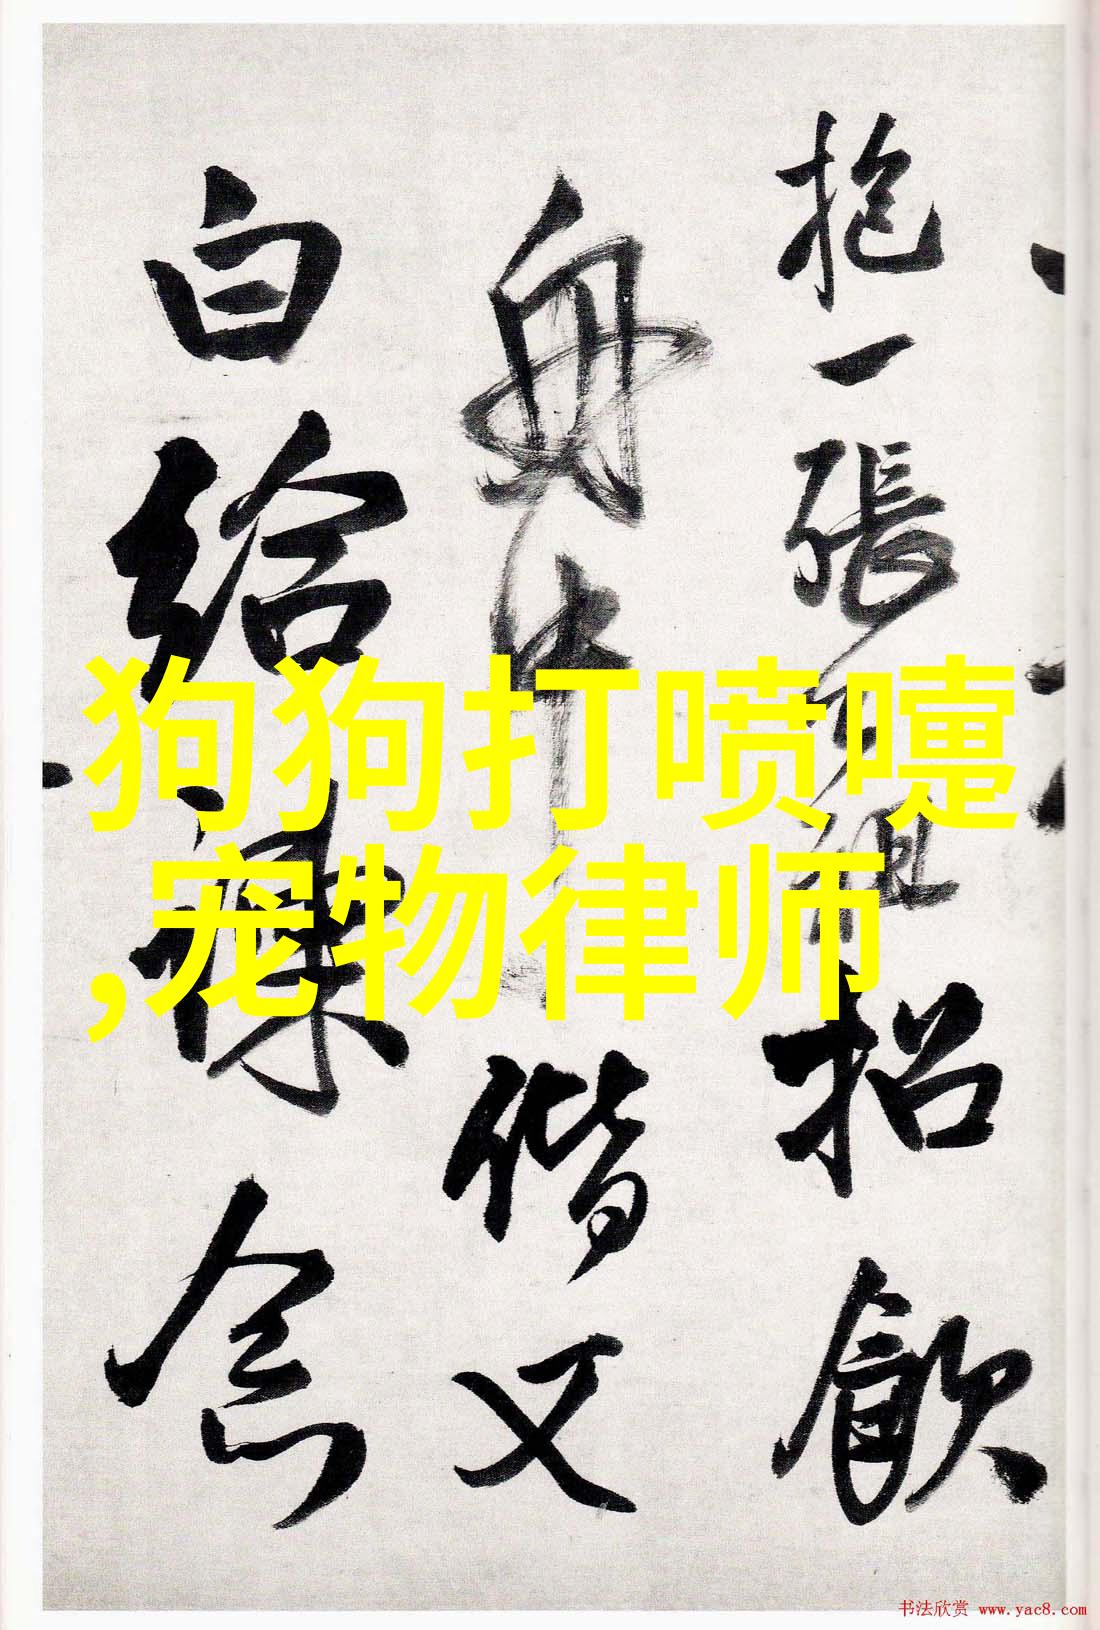 抱一張𠂆祖招飲
舟中偕又
白給諫念
狗狗打喷嚏
,宠物律师
书法欣赏 www.yac8.com